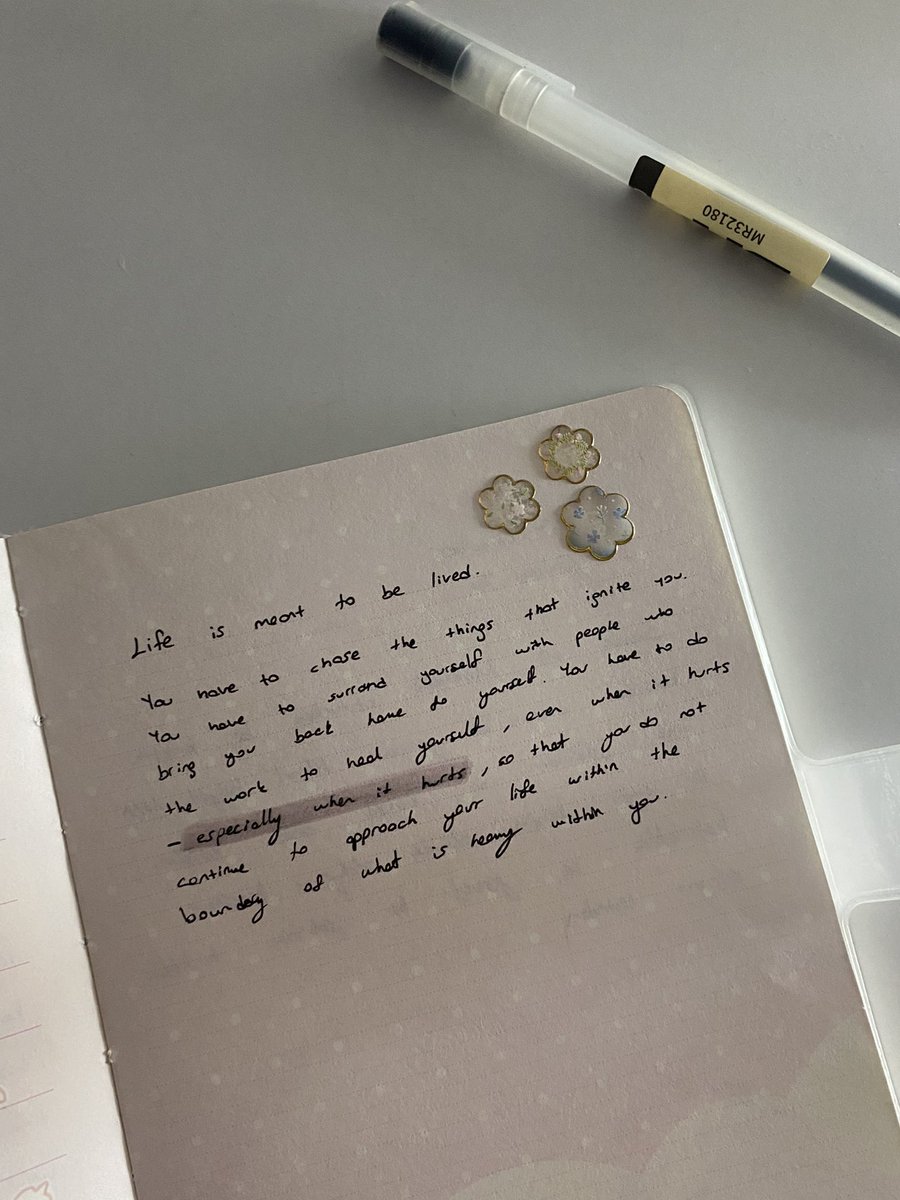 MR32180
Life is meant to be lived.
You have to chase the things that ignite you.
You have to surrond yourself with people who
bring you back home to yourself. You have to do
the work to heal yourself, even when it hurts
- especially when it hurts, so that you do not
continue to approach your life within the
boundary of what is heavy within you.